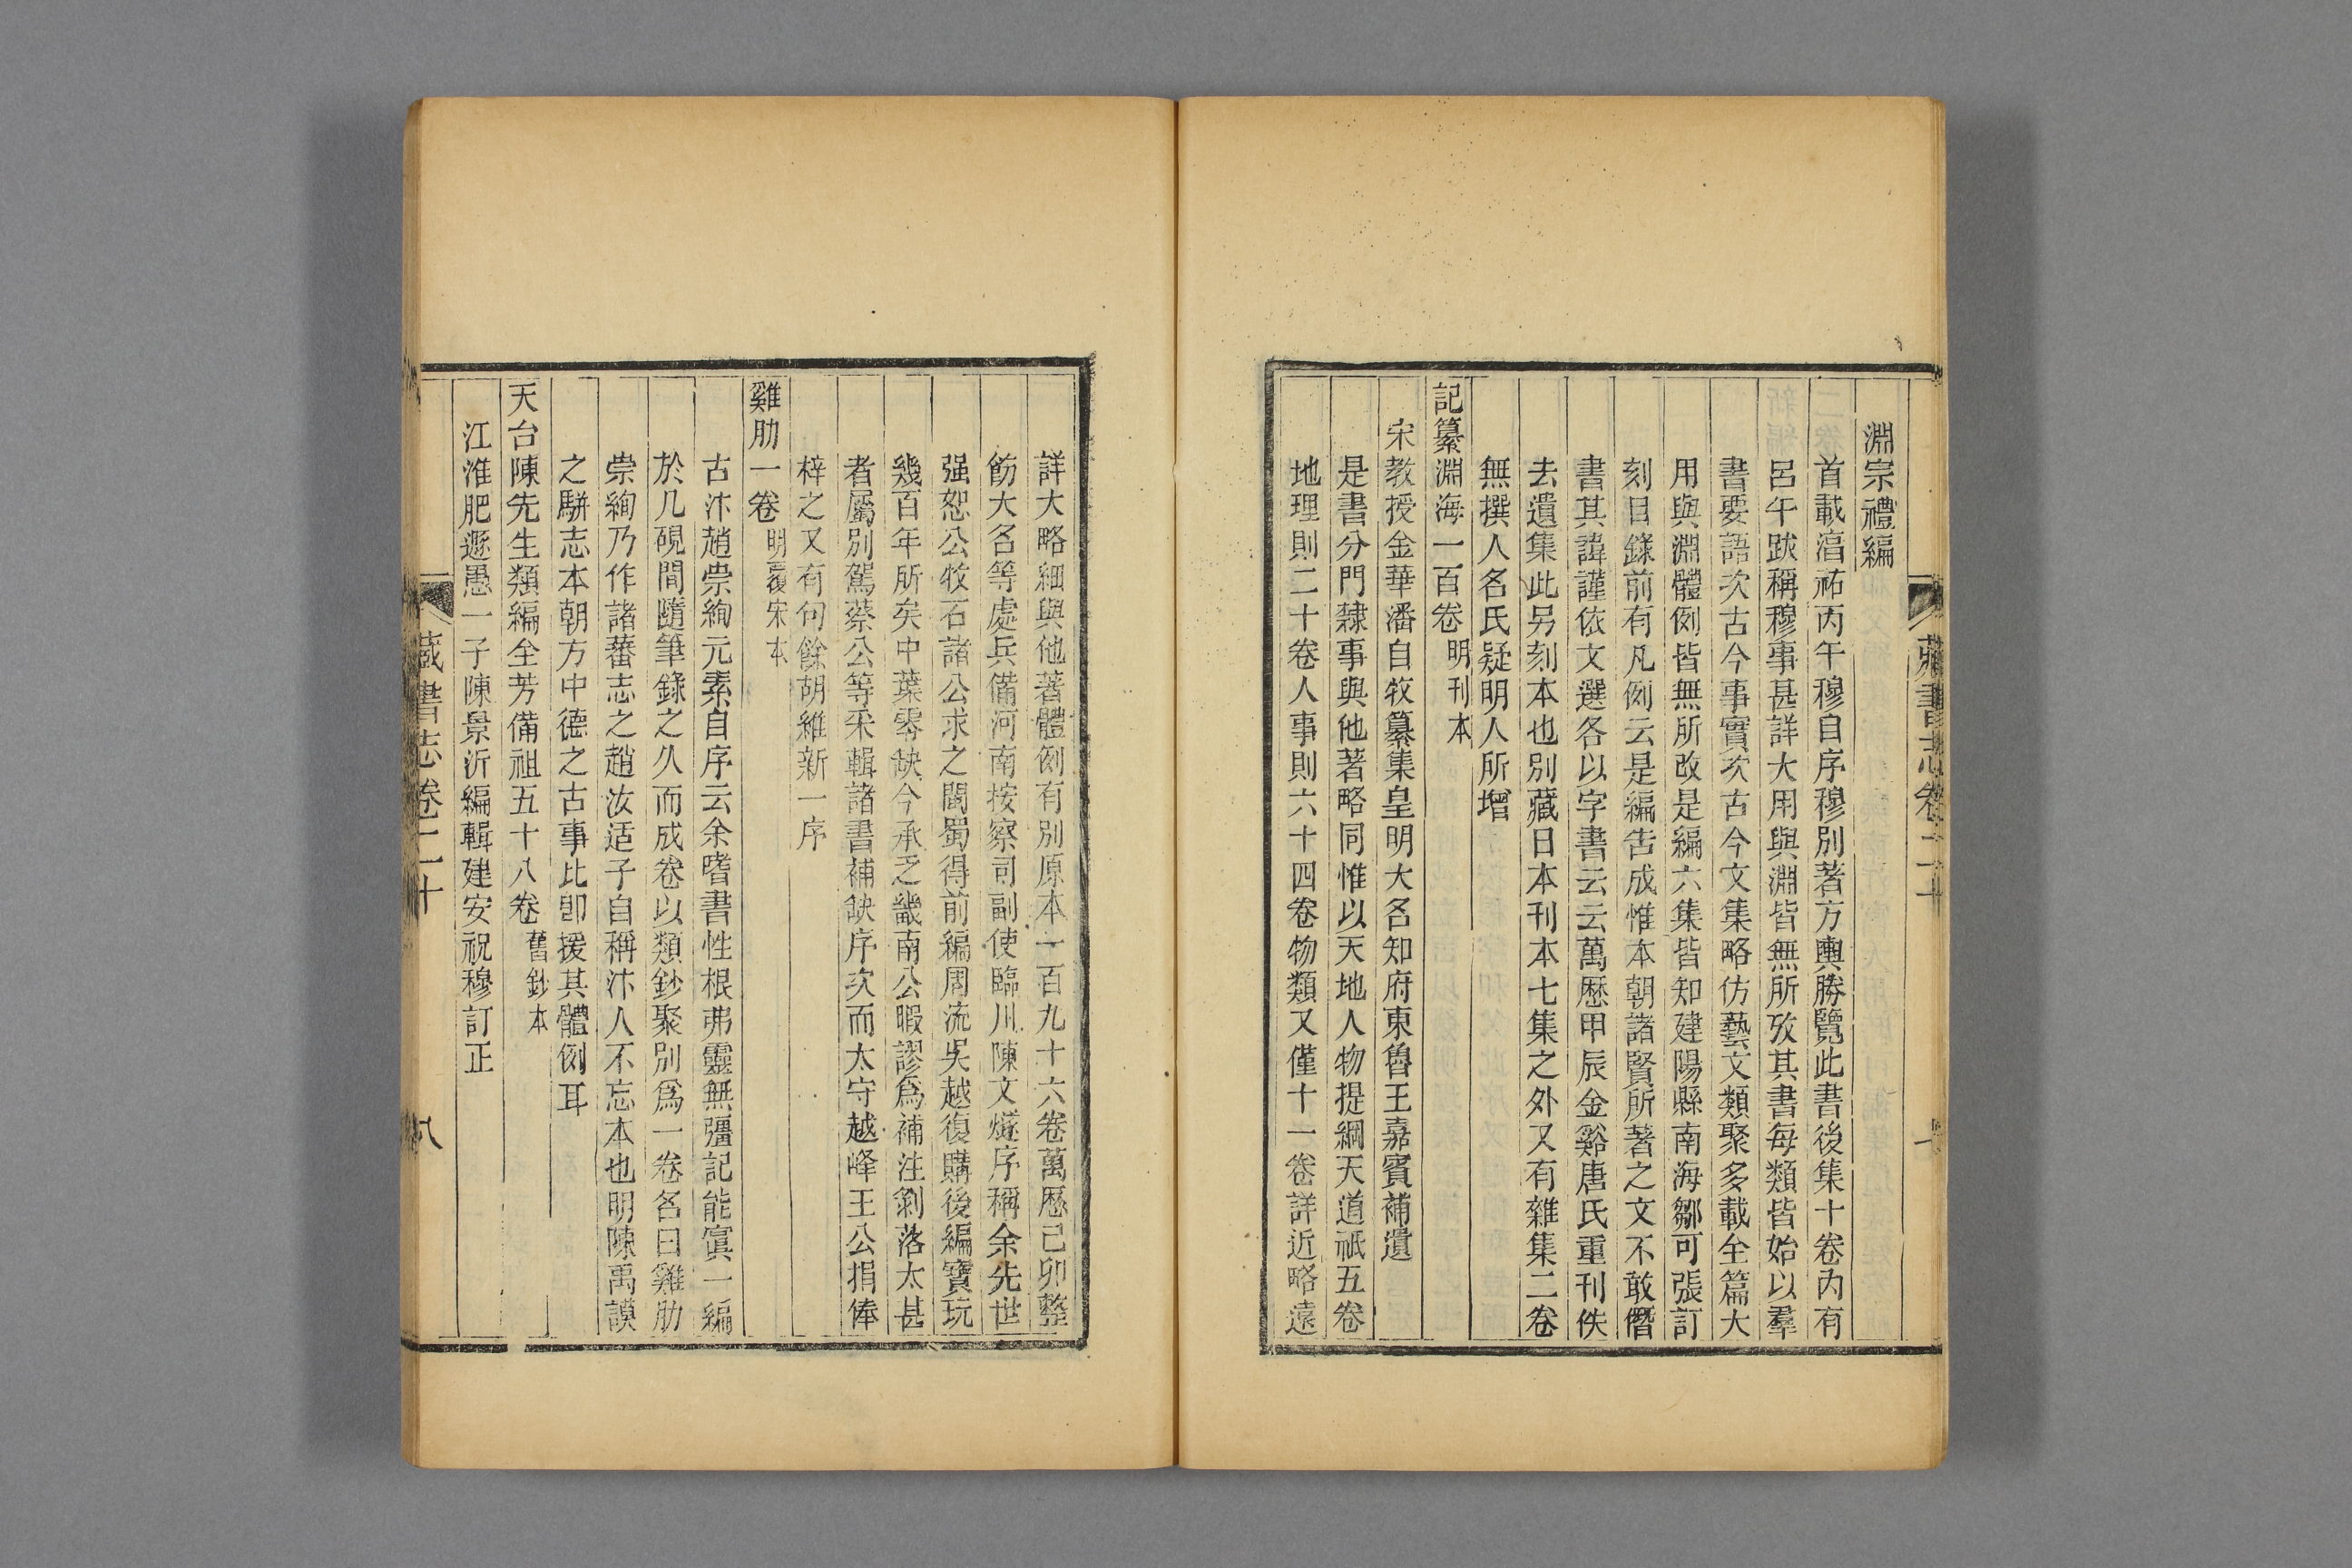 藏書志卷二十
淵宗禮編
首載淳祐丙午穆自序穆別著方輿勝覽此書後集十卷內有
呂午跋稱穆事甚詳大用與淵皆無所攷其書每類皆始以羣
書要語次古今事實次古今文集略仿藝文類聚多載全篇大
用與淵體例皆無所改是編六集皆知建陽縣南海鄒可張訂
刻目錄前有凡例云是編告成惟本朝諸賢所著之文不敢僭
書其諱謹依文選各以字書云云萬歷甲辰金谿唐氏重刊佚
去遺集此另刻本也別藏日本刊本七集之外又有雜集二卷
無撰人名氏疑明人所增
記纂淵海一百卷明刊本
宋教授金華潘自牧纂集皇明大名知府東魯王嘉賓補遺
是書分門隸事與他著略同惟以天地人物提綱天道祇五卷
地理則二十卷人事則六十四卷物類又僅十一卷詳近略遠
詳大略細與他著體例有別原本一百九十六卷萬歷己卯整
飭大名等處兵備河南按察司副使臨川陳文燧序稱余先世
强恕公牧石諸公求之閩蜀得前編周流吳越復購後編寶玩
幾百年所矣中葉零缺今承乏畿南公暇謬爲補注剝落太甚
者屬別駕蔡公等采輯諸書補缺序次而太守越峰王公捐俸
梓之又有句餘胡維新一序
雞肋一卷明覆宋本
古汴趙崇絢元素自序云余嗜書性根弗靈無彊記能寘一編
於几硯間隨筆錄之久而成卷以類鈔聚別爲一卷名曰雞肋
崇絢乃作諸蕃志之趙汝适子自稱汴人不忘本也明陳禹謨
之駢志本朝方中德之古事比卽援其體例耳
天台陳先生類編全芳備祖五十八卷舊鈔本
江淮肥遯愚一子陳景沂編輯建安祝穆訂正
藏書志卷二十
八